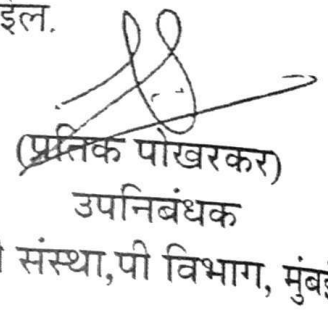 इल.
(प्रतिक पोखरकर)
उपनिबंधक
संस्था,पी विभाग, मुंबई